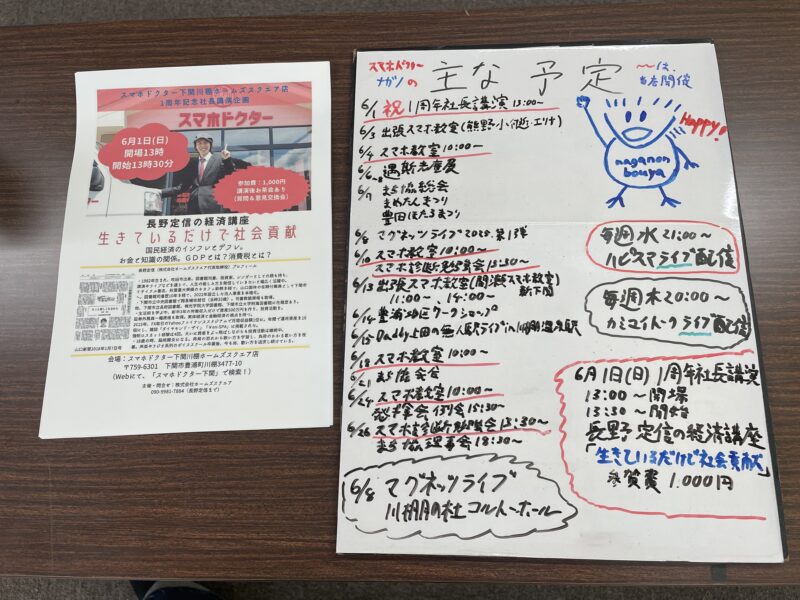 スマホドクター下関川棚ホームズスクエア店
1周年記念社長講演企画
スマホドクター
6月1日(日)
開場13時
開始13時30分
参加費:1,000円
講演後お茶会あり
(質問&意見交換会)
長野定信の経済講座
生きているだけで社会貢献
国民経済のインフレとデフレ。
お金と知識の関係。GDPとは?消費税とは?
長野定信(株式会社ホームズスクエア代表取締役)プロフィール
山口新聞2018年1月1日号
会場:スマホドクター下関川棚ホームズスクエア店
〒759-6301 下関市豊浦町川棚3477-10
(Webにて、「スマホドクター下関」で検索!)
主催・問合せ:株式会社ホームズスクエア
090-9981-7884(長野定信まで)
スマホドクター
ナガノの
主な予定
〜は、
当店開催
6/1 祝 1周年社長講演 13:00〜
6/3 出張スマホ教室
6/4 スマホ教室 10:00〜
6/7 まち協総会
まめだんまつり
豊田ほたるまつり
6/8 マグネッツライブ2025.第1弾
6/10 スマホ教室 10:00〜
スマホ診断見努会 13:30〜
6/13 出張スマホ教室
11:00〜、14:00〜 新下関
6/14 豊浦地区ワークショップ
6/15 Daddy上田の無人駅ライブin川棚温泉駅
6/18 スマホ教室 10:00〜
6/21 まち協会会
6/24 スマホ教室 10:00〜
例会 15:30〜
6/26 スマホ診断 13:30〜
まち協理事会 18:30〜
6/8 マグネッツライブ
川棚の杜コルトーホール
Happy!
naganon
bouya
毎週水21:00〜
ハピスマライブ配信
毎週木20:00〜
カミコイトークライブ配信
6月1日(日) 1周年社長講演
13:00〜開場
13:30〜開始
長野定信の経済講座
「生きているだけで社会貢献」
参加費 1,000円